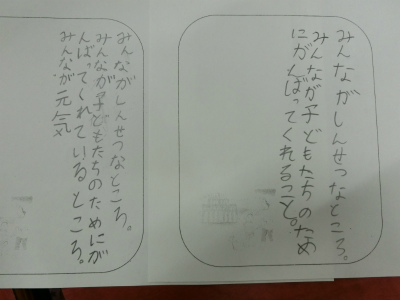 みんながしんせつなところ。
みんなが子どもたちのため
にがんばってくれること。
みんながしんせつなところ。
みんなが子どもたちのためにが
んばってくれているところ。
みんなが元気